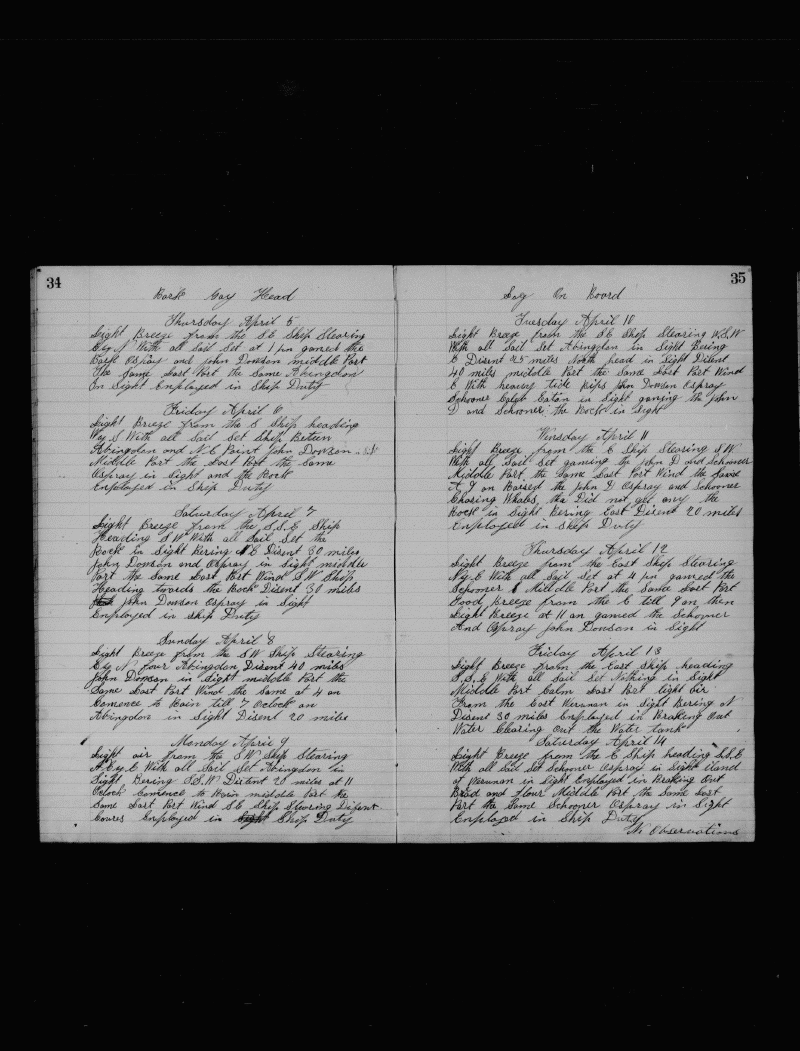 34
Bark Gay Head
Thursday April 5
Light Breeze from the S.E Ship Stearing
By S With all Sail Set at 1 pm gamed the
Bark Ospray and John Dowson middle Part
The Same Last Part the Same Abingdon
In Sight Employed in Ship Duty
Friday April 6
Light Breeze from the S Ship heading
W by S With all Sail Set Ship Beteen
Abingdon and N.E Point John Dowson
Middle Part the Last Part the Same
Ospray in Sight and the Rock
Employed in Ship Duty
Saturday April 7
Light Breeze from the S.S.E Ship
Heading S W With all Sail Set the
Rock in Sight Bering N E Disent 30 miles
John Dowson and Ospray in Sight middle
Part the Same Last Part Wind S.W Ship
Heading towards the Rock Disent 30 miles
John Dowson Ospray in Sight
Employed in Ship Duty
Sunday April 8
Light Breeze from the S W Ship Stearing
E by N four Abingdon Disent 40 miles
John Dowson in Sight middle Part the
Same Last Part Wind the Same at 4 am
Comence to Rain till 7 Oclock am
Abingdon in Sight Disent 20 miles
Monday April 9
Light air from the S W Ship Stearing
by E With all Sail Set Abingdon in
Sight Bering S.S.W Distent 20 miles at 11
Oclock Comence to Warm middle Part the
Same Last Part Wind S E Ship Stearing Difent
Coures Employed in Ship Duty
35
Log On Board
Tuesday April 10
Light Breeze from the S E Ship Stearing W.S.W
With all Sail Set Abingdon in Sight Bering
E Disent 25 miles North head in Sight Disent
40 miles middle Part the Same Last Part Wind
E With heavy tide rips John Dowson Ospray
Schooner Caleb Eaton in Sight gamjng the John
D and Schooner the Rock in Sight
Wensday April 11
Light Breeze from the E Ship Stearing S W
With all Sail Set gaming the John D and Schooner
Middle Part the Same Last Part Wind the Same
At 9 am Raised the John D Ospray and Schooner
Chasing Whales, the Did not get any the
Rock in Sight Bering East Disent 20 miles
Employed in Ship Duty
Thursday April 12
Light Breeze from the East Ship Stearing
N by E With all Sail Set at 4 pm gamed the
Schooner Middle Part the Same Last Part
Good Breeze from the E till 9 am then
Light Breeze at 11 am gamed the Schooner
And Ospray John Dowson in Sight
Friday April 13
Light Breeze from the East Ship heading
S.S.E With all Sail Set Nothing in Sight
Middle Part Calm Last Part light air
From the East Wenman in Sight Bering N
Disent 30 miles Employed in Braking Out
Water Clearing Out the Water tank
Saturday April 14
Light Breeze from the E Ship heading S.S.E
With all Sail Set Schooner Ospray in Sight iland
of Wenman in Sight Employed in Braking Out
Bread and Flour Middle Part the Same Last
Part the Same Schooner Ospray in Sight
Employed in Ship Duty
No Observations